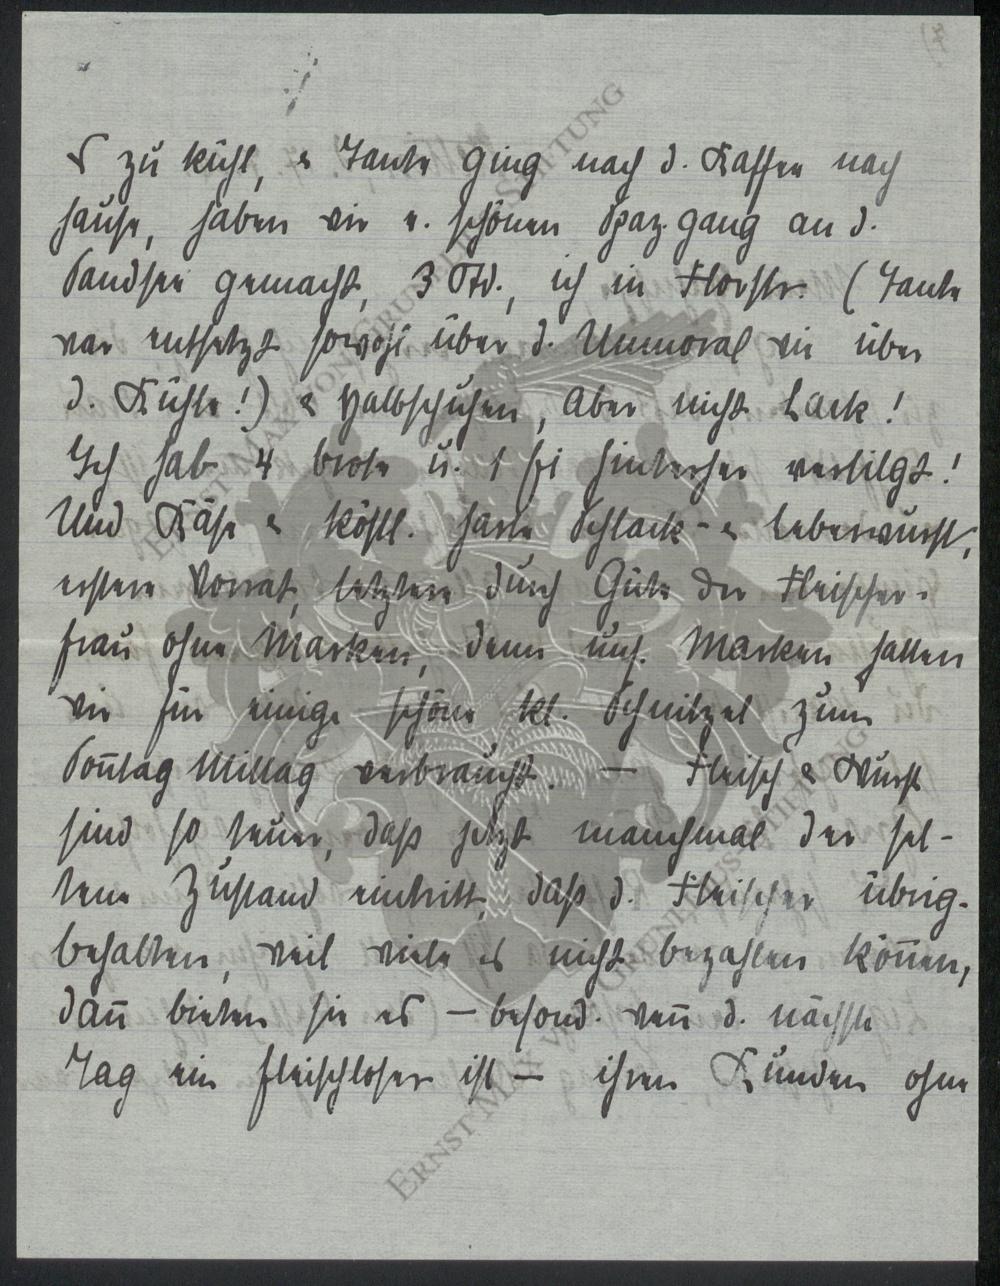 es zu kühl, & Tante ging nach d. Kaffee nach
hause, haben wir e. schönen Spaz.gang an d.
Landsee gemacht, 3 Std., ich in Florstr. (Tante
war entsetzt sowohl über d. Unmoral wie über
d. Kühle!) & Halbschuhen, aber nicht Lack!
Ich hab 4 brote u. 1 Ei hinterher vertilgt!
Und Käse & köstl. harte Schlack- & Leberwurst,
erstere Vorrat, letztere durch Güte der Fleischer-
frau ohne Marken, denn uns. Marken hatten
wir für einige schöne kl. Schnitzel zum
Sonntag Mittag verbraucht. — Fleisch & Wurst
sind so teuer, daß jetzt manchmal der sel-
tene Zustand eintritt, daß d. Fleischer übrig-
behalten, weil viele es nicht bezahlen können,
dann bieten sie es — besond. wenn d. nächste
Tag ein fleischloser ist — ihren Kunden ohne
ERNST MAX VON GRUNELIUS-STIFTUNG
ERNST MAX VON GRUNELIUS-STIFTUNG